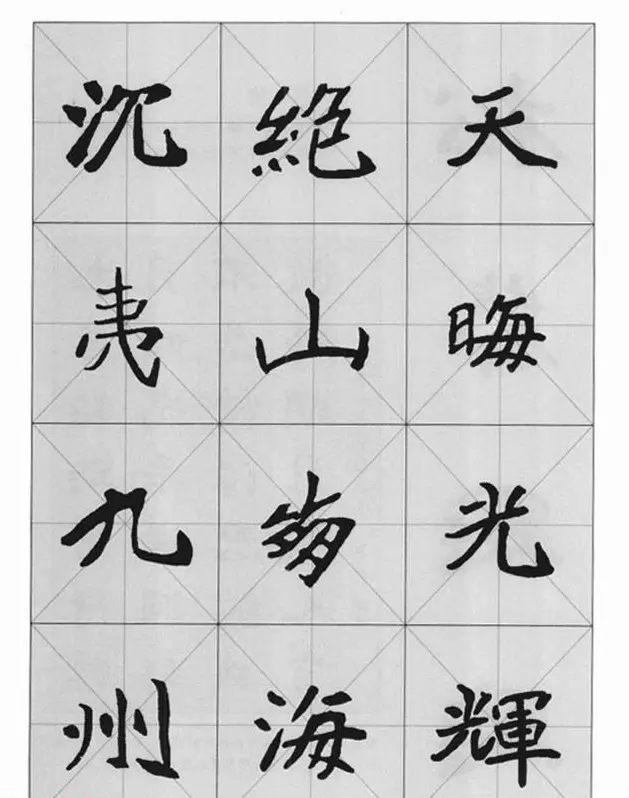 天晦光輝
絶山崩海
沉夷九州